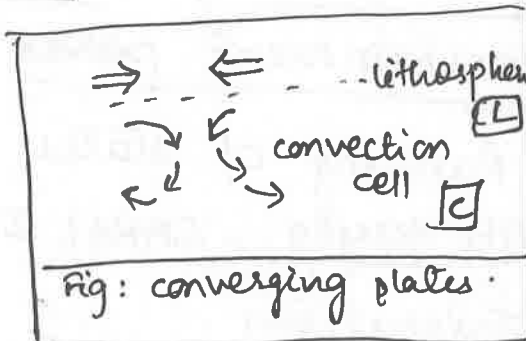 lithospher
L
convection
cell
C
Fig: converging plates.